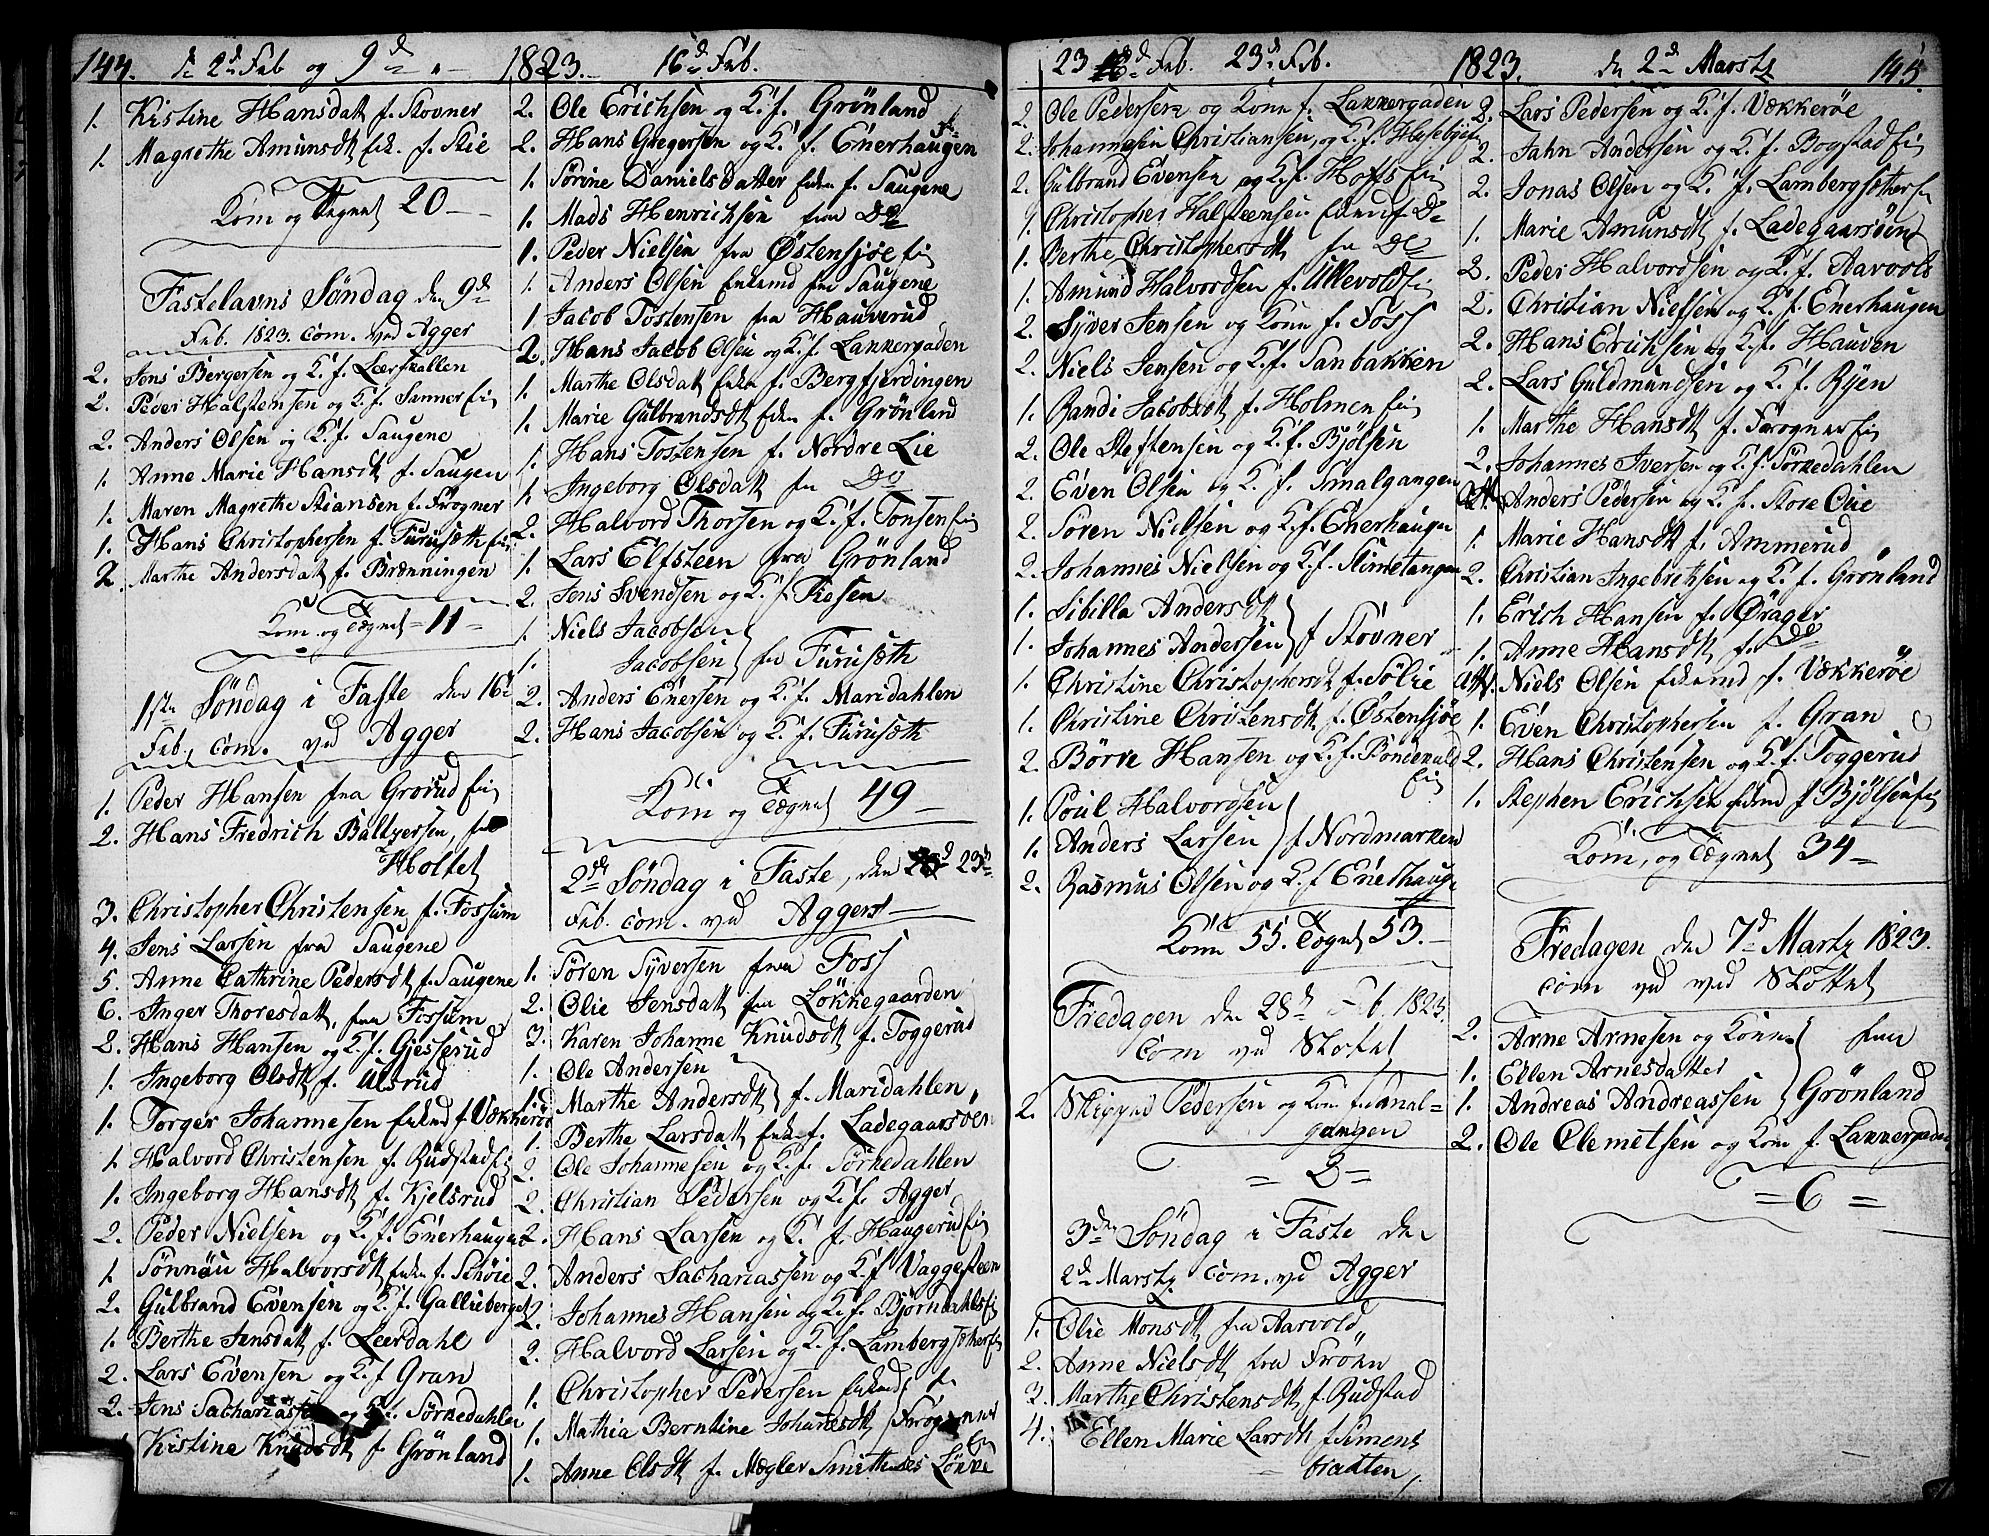 144. d. 2d Feb og 9de 1823. 16d Feb.
1. Kistine Hansdat f. Stovner
1. Magrethe Amunsdt Enk. f. Stie
Kom og Tegnet 20
Fastelavns Søndag den 9de
Feb. 1823. Com. ved Agger
2. Jens Bergersen og K. f. Leerskallen
2. Peder Halstensen og K. f. Sanner Eie
2. Anders Olsen og K. f. Saugene
1. Anne Marie Hansdt f. Saugen
1. Maren Magrethe Stiansen f. Frogner
1. Hans Christophersen f. Furusæth Eie
2. Marthe Andersdat f. Brænningen
Kom og Tegnet 11
1ste Søndag i Faste den 16de
Feb. Com. ved Agger
1. Peder Hansen fra Grorud Eie
2. Hans Fredrich Baltzersen, fra
Holtet
3. Christopher Christensen f. Fossum
4. Jens Larsen fra Saugene
5. Anne Cathrine Pedersdt f. Saugene
6. Inger Thoresdatt, fra Fossum
2. Hans Hansen og K. f. Gjesserud
1. Ingeborg Olsdt f. Ulsrud
1. Torger Johannesen Enkmd f. Vækkerøe
1. Halvord Christensen f. Rudstad Eie
1. Ingeborg Hansdt f. Kjelsrud
2. Peder Nielsen og K. f. Enerhaugen
1. Sønnau Halvorsdt Enke f. Schøie
2. Gulbrand Evensen og K. f. Gallieberget
1. Berthe Jensdatt f. Leerdahl
2. Lars Evensen og K. f. Gran
2. Jens Sachariassen og K. f. Sørkedahlen
1. Kistine Knudsdt f. Grønland
2. Ole Erichsen og K. f. Grønland
2. Hans Gregersen og K. f. Enerhaugen
1. Sørine Danielsdatter Enke f. Saugene
1. Mads Henrichsen fra Do
1. Peder Nielsen fra Østensjøe Eie
1. Anders Olsen Enkemd fra Saugene
1. Jacob Tostensen fra Hauverud
2. Hans Jacob Olsen og K. f. Lakkergaden
1. Marthe Olsdatt Enke f. Bergfjerdingen
1. Marie Gulbrandsdt Enke f. Grønland
1. Hans Tostensen f. Nordre Lie
1. Ingeborg Olsdatt fra Do
2. Halvord Thorsen og K. f. Tonsen Eie
1. Lars Elfsteen fra Grønland
2. Jens Svendsen og K. f. Risen
1. Niels Jacobsen
1. Jacobsen } fra Furusæth
2. Anders Enersen og K. f. Maridahlen
2. Hans Jacobsen og K. f. Furusæth
Kom og Tegnet 49
2de Søndag i Faste, den 23de
Feb. Com. ved Agger
1. Søren Syversen fra Foss
2. Olie Jensdatt fra Løkkegaarden
3. Karen Johanne Knudsdt f. Toggerud
1. Ole Andersen
1. Marthe Andersdt } f. Maridahlen
1. Berthe Larsdatt Enke f. Ladegaarsøen
2. Ole Johannesen og K. f. Sørkedahlen
2. Christian Pedersen og K. f. Agger
2. Hans Larsen og K. f. Haugerud Eie
2. Anders Sachariassen og K. f. Vaggesteen
2. Johannes Hansen og K. f. Bjørndahls Eie
2. Halvord Larsen og K. f. Lambergsæther Eie
1. Christopher Pedersen Enkmd f.
1. Mathia Berntine Johanesdt } Frogner Eie
1. Anne Olsdt f. Mægler Smithes Løkke
23 d Feb. 23d Feb. 1823. den 2d Marsts 145
2. Ole Pedersen og Kone f. Lakkergaden
2. Johannesen Christiansen, og K. f. Husebye Eie
2. Gulbrand Evensen og K. f. Hoffs Eie
1. Christopher Halsteensen Enkmd f. Do
1. Berthe Christophersdt fra Do
1. Amund Halvordsen f. Ullevold Eie
2. Syver Jensen og Kone f. Foss
2. Niels Jensen og K. f. Sanbakken
1. Randi Jacobsdt f. Holmen Eie
2. Ole Steffensen og K. f. Bjølsen
2. Even Olsen og K. f. Smalgangen
2. Søren Nielsen og K. f. Enerhaugen
2. Johannes Nielsen og K. f. Slimetangen
1. Sibilla Andersdt
1. Johannes Andersen } f. Stovner
1. Christine Christophersdt f. Sølie
1. Christine Christensdt f. Østensjøe
2. Børre Hansen og K. f. Pøndevald
Eie
1. Poul Halvordsen
1. Anders Larsen } f. Nordmarken
2. Rasmus Olsen og K. f. Enerhaugen
Kom 55. Tegnet 53.
Fredagen den 28d Feb. 1823.
Com ved Slottet
2. Skipper Pedersen og Kone fra Smal=
gangen
= 2 =
3de Søndag i Faste den
2d Marsty Com. ved Agger
1. Olie Monsdt fra Aarvold
2. Anne Nielsdt fra Frøen
3. Marthe Christensdt f. Rudstad
4. Ellen Marie Larsdt f. Simens
bratten
2. Lars Pedersen og K. f. Vækkerøe
2. Jahn Andersen og K. f. Bogstad Eie
2. Jonas Olsen og K. f. Lambergsæther Eie
1. Marie Amunsdt f. Ladegaarsøen
2. Peder Halvordsen og K. f. Aarvols
2. Christian Nielsen og K. f. Enerhaugen
2. Hans Erichsen og K. f. Hauven
2. Lars Guldmundsen og K. f. Ryen
1. Marthe Hansdt f. Frogner Eie
2. Johannes Iversen og K. f. Sørkedahlen
Anders Pedersen og K. f. Store Øie
1. Marie Hansdt f. Ammerud
2. Christian Ingebrethsen og K. f. Grønland
1. Erich Hansen f. Ørager
1. Anne Hansdt f. Do
Niels Olsen Enkmd f. Vækkerøe
1. Even Christophersen f. Gran
2. Hans Christensen og K. f. Toggerud
1. Stephen Erichsen Enkmd f. Bjølsen Eie
Kom, og Tegnet 34
Fredagen den 7d Marty 1823.
Com ved ved Slottet
2. Arne Arnesen og Kone
1. Ellen Arnesdatter
1. Andreas Andreassen } fra Grønland
2. Ole Clemetsen og Kone f. Lakkergaden
= 6 =